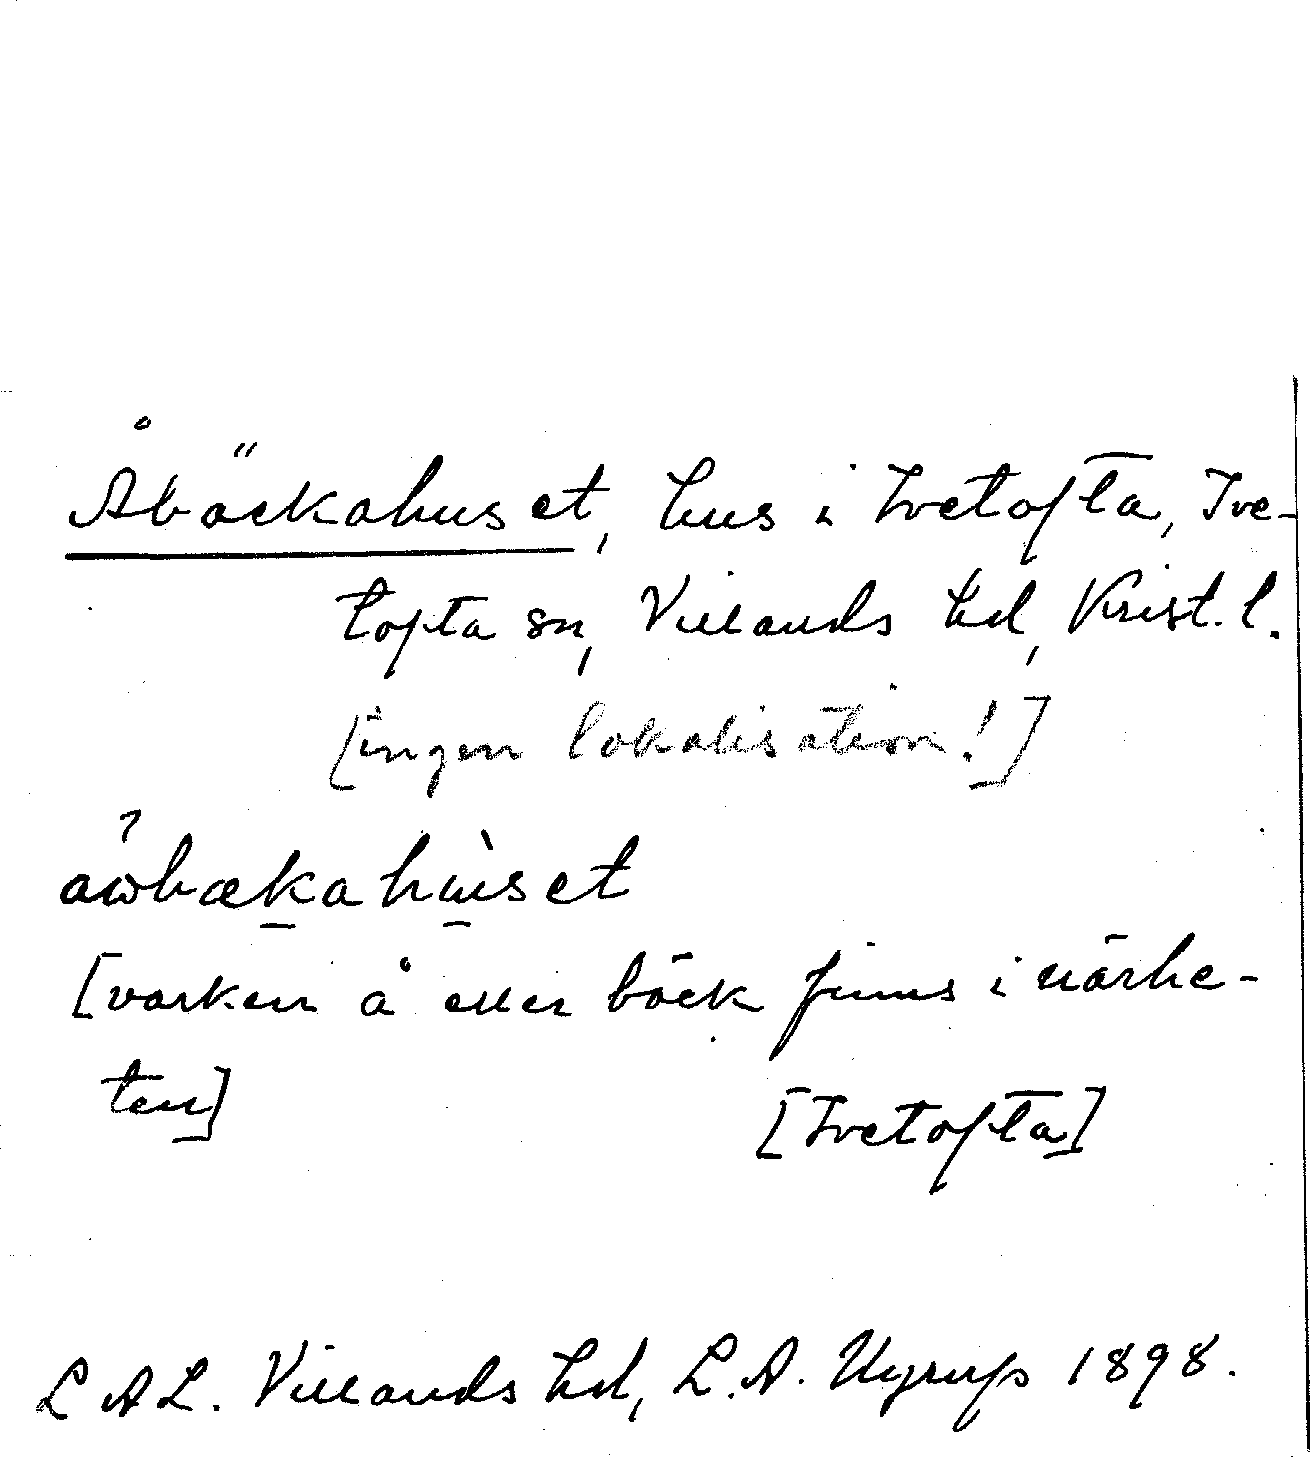 Åbäckahuset, hus i Ivetofta, Ive-
tofta sn, Villands hd, Krist. l.
[ingen lokalisation!]
åwbækahùset
[varken å eller bäck finns i närhe-
ten]
[Ivetofta]
LAL. Villands hd, L.A. Ugrups 1898.